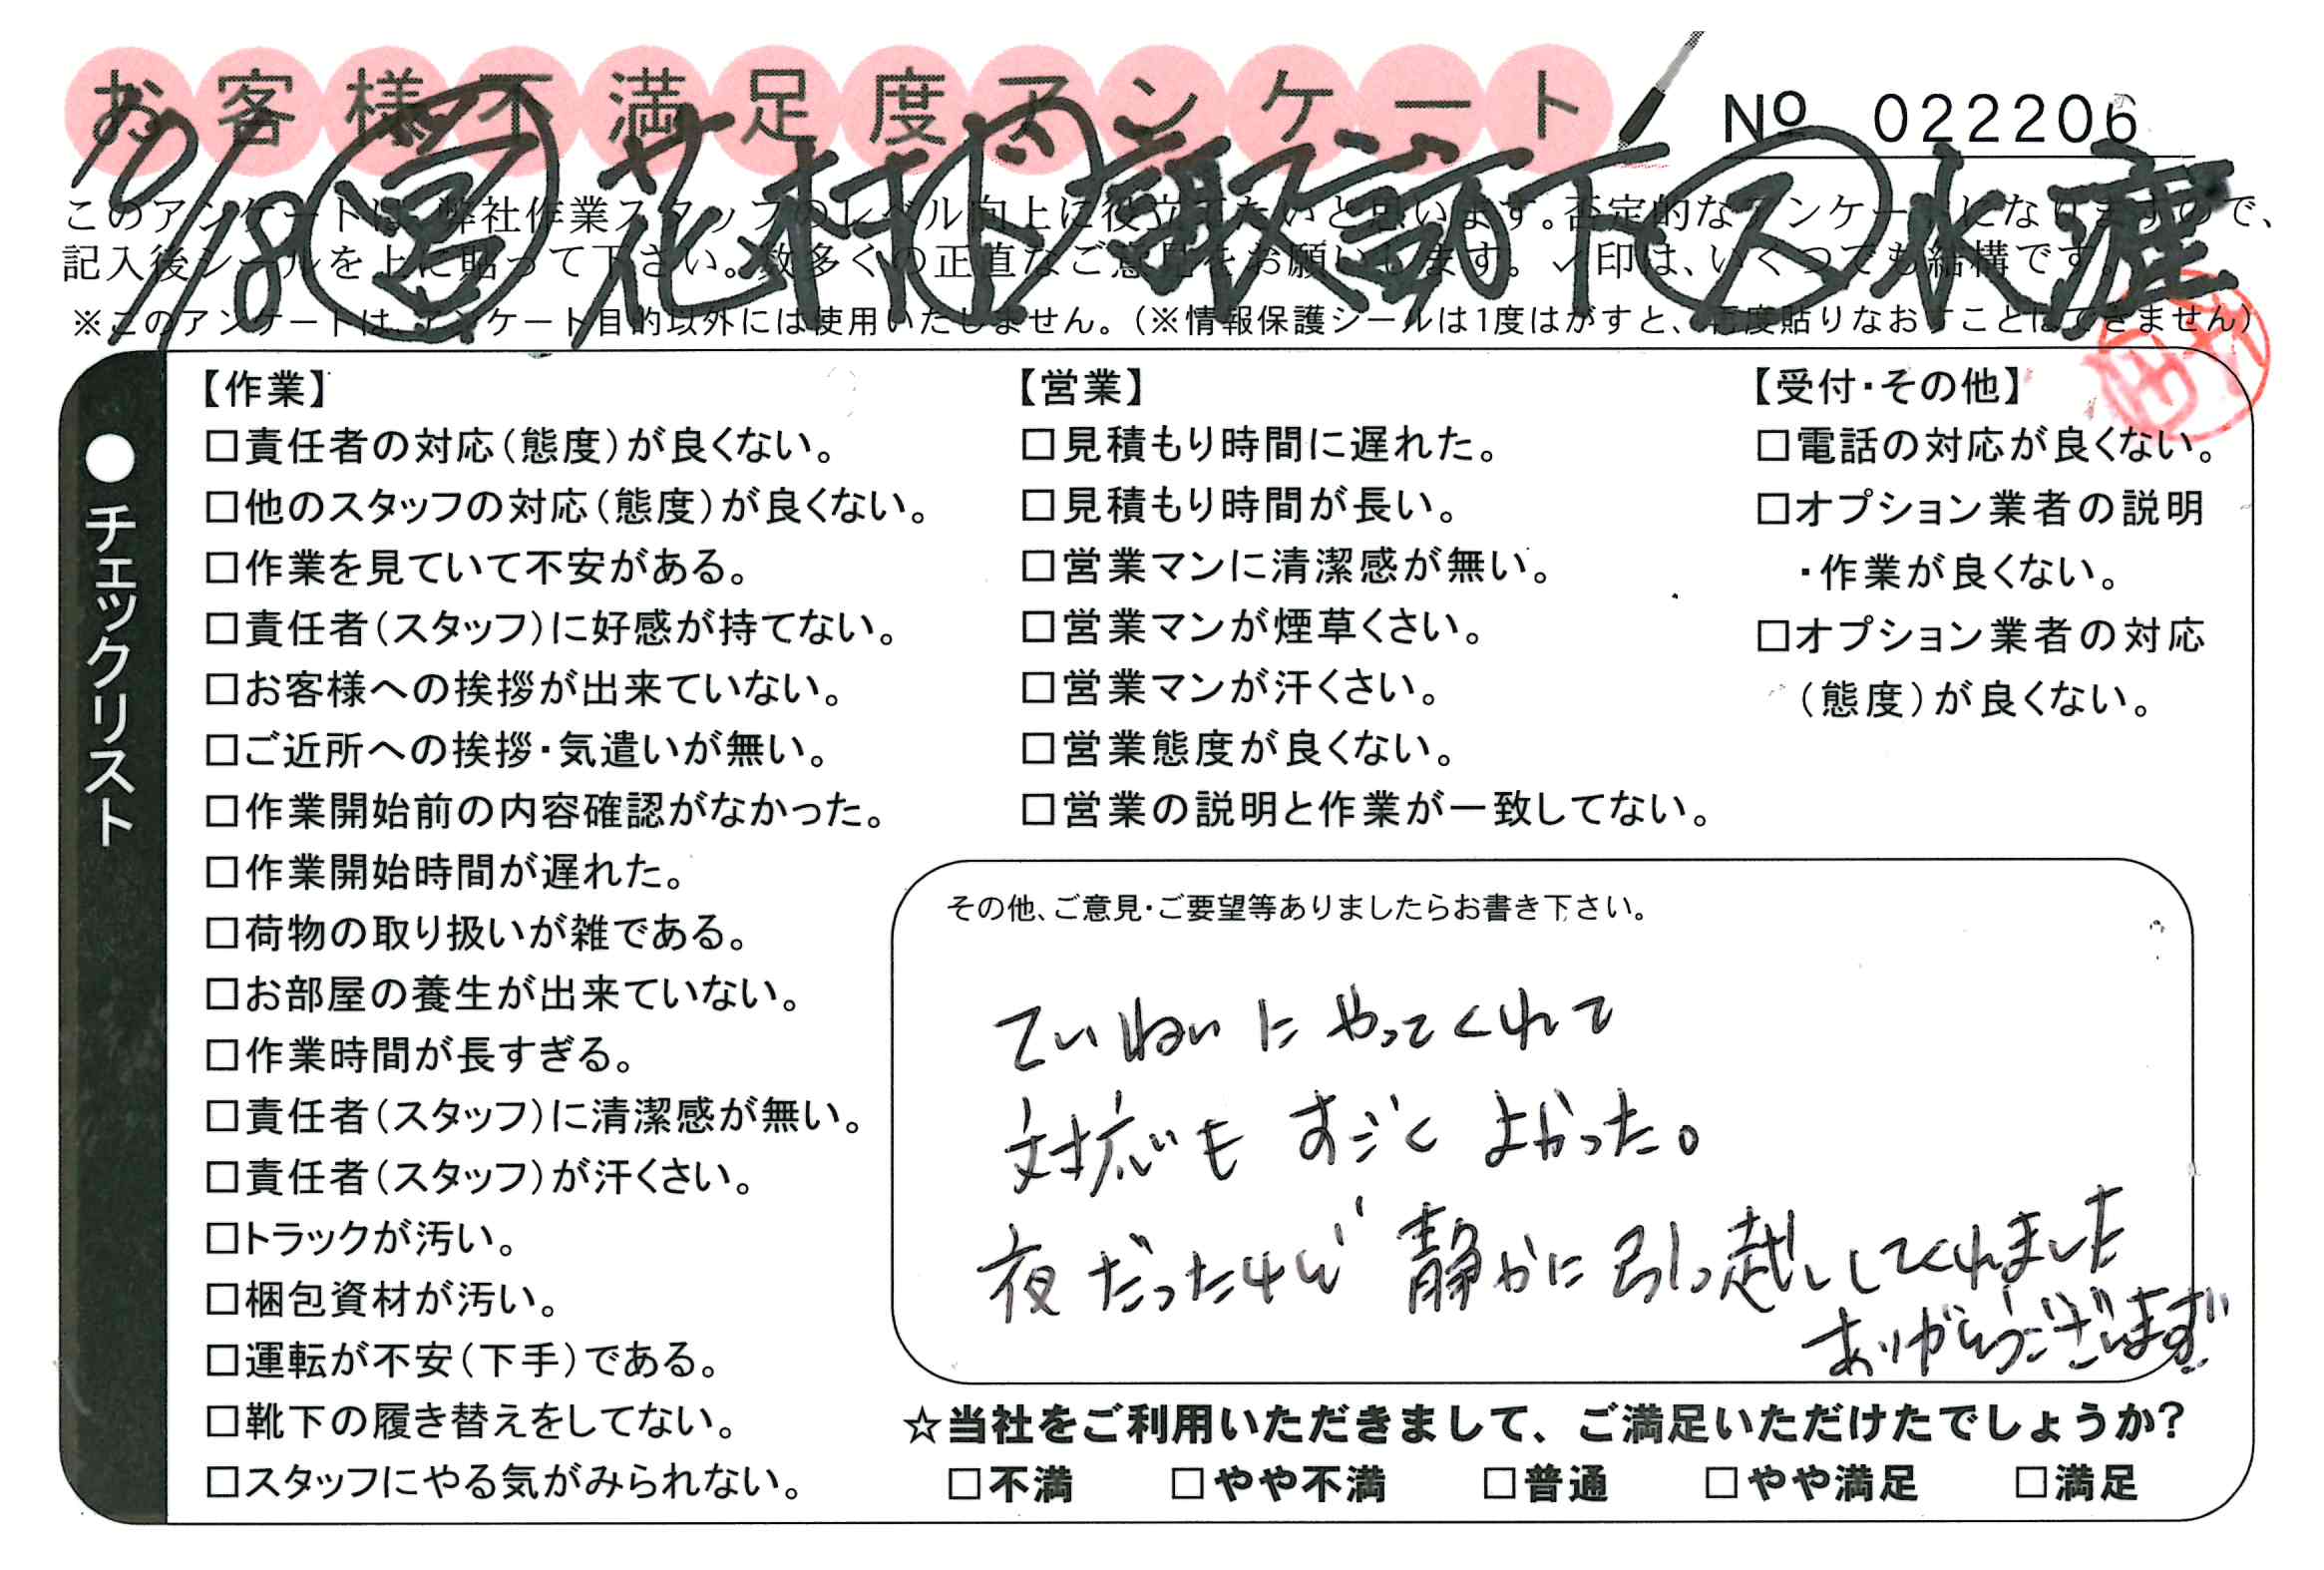 お客様不満足度アンケート
№ 022206
このアンケートは、弊社作業スタッフのレベル向上に役立てたいと思います。否定的なアンケートになりますので、
記入後シールを上に貼って下さい。数多くの正直なご意見をお願いします。✓印は、いくつでも結構です。
※このアンケートは、アンケート目的以外には使用いたしません。(※情報保護シールは1度はがすと、再度貼りなおすことはできません)
●チェックリスト
【作業】
□責任者の対応(態度)が良くない。
□他のスタッフの対応(態度)が良くない。
□作業を見ていて不安がある。
□責任者(スタッフ)に好感が持てない。
□お客様への挨拶が出来ていない。
□ご近所への挨拶・気遣いが無い。
□作業開始前の内容確認がなかった。
□作業開始時間が遅れた。
□荷物の取り扱いが雑である。
□お部屋の養生が出来ていない。
□作業時間が長すぎる。
□責任者(スタッフ)に清潔感が無い。
□責任者(スタッフ)が汗くさい。
□トラックが汚い。
□梱包資材が汚い。
□運転が不安(下手)である。
□靴下の履き替えをしてない。
□スタッフにやる気がみられない。
【営業】
□見積もり時間に遅れた。
□見積もり時間が長い。
□営業マンに清潔感が無い。
□営業マンが煙草くさい。
□営業マンが汗くさい。
□営業態度が良くない。
□営業の説明と作業が一致してない。
【受付・その他】
□電話の対応が良くない。
□オプション業者の説明
・作業が良くない。
□オプション業者の対応
(態度)が良くない。
その他、ご意見・ご要望等ありましたらお書き下さい。
ていねいにやってくれて
対応もすごくよかった。
夜だったけど静かに引っ越ししてくれました
ありがとうございます
☆当社をご利用いただきまして、ご満足いただけたでしょうか?
□不満 □やや不満 □普通 □やや満足 □満足